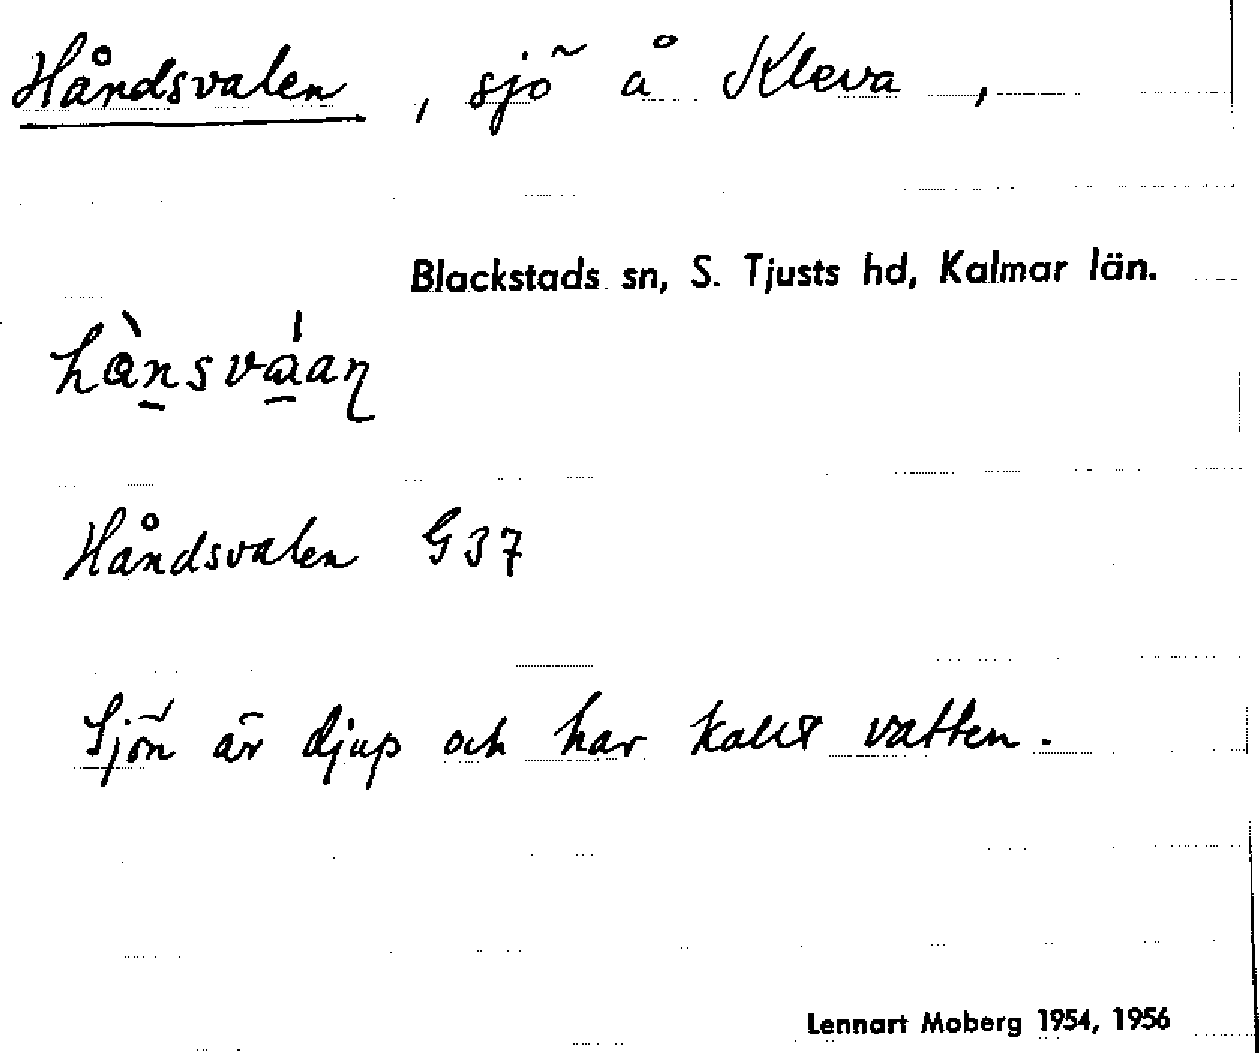 Håndsvalen, sjö å Kleva,
Blackstads sn, S. Tjusts hd, Kalmar län.
Håndsvalen G 37
Sjön är djup och har kallt vatten.
Lennart Moberg 1954, 1956